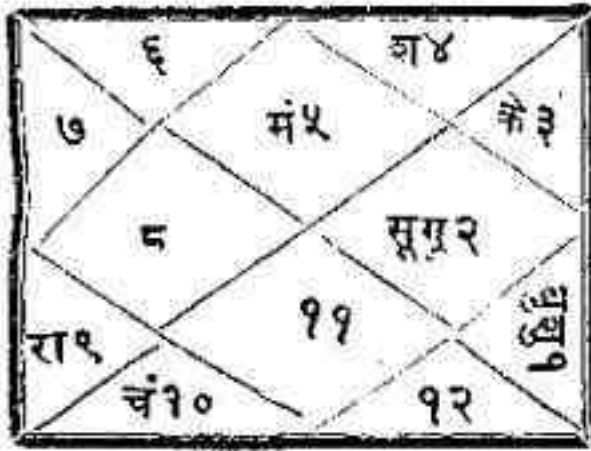 ६ श४
७ मं५ के३
८ सूगु२
रा९ ११ बुशु१
चं१० १२